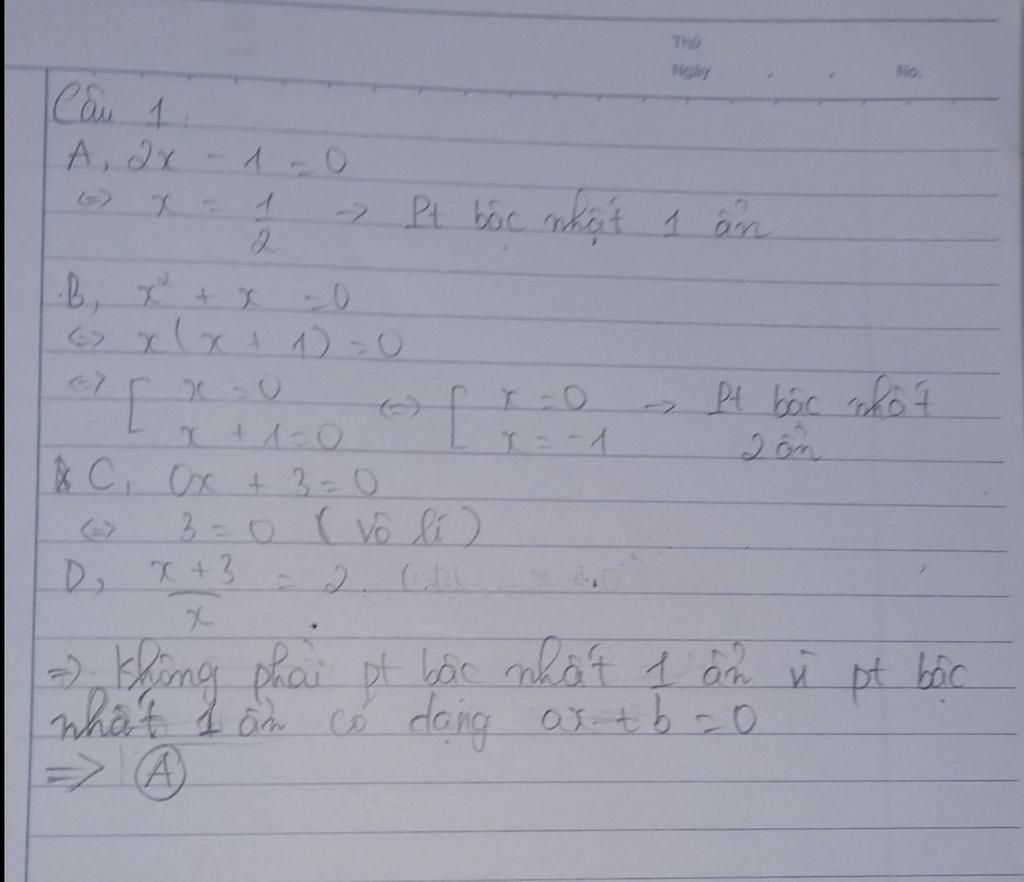 Thứ
Ngày . . No.
Câu 1.
A, 2x - 1 = 0
<=> x = 1/2 -> Pt bậc nhất 1 ẩn
B, x² + x = 0
<=> x(x + 1) = 0
<=> [ x = 0 <=> [ x = 0 -> Pt bậc nhất
x + 1 = 0 x = -1 2 ẩn
C, 0x + 3 = 0
<=> 3 = 0 (vô lí)
D, (x + 3)/x = 2.
=> Không phải pt bậc nhất 1 ẩn vì pt bậc
nhất 1 ẩn có dạng ax + b = 0
=> A